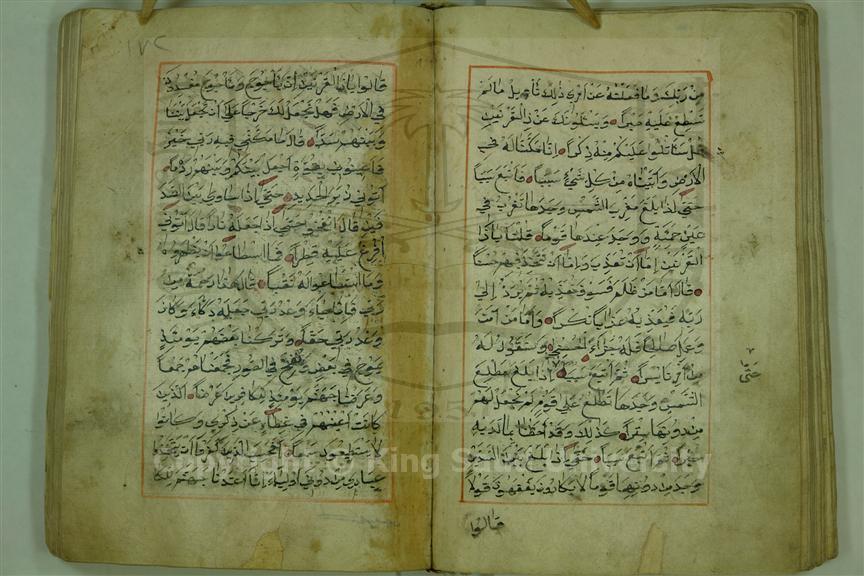 من ربك وما فعلته عن امري ذلك تاويل ما لم
تسطع عليه صبرا ويسئلونك عن ذي القرنين
قل ساتلوا عليكم منه ذكرا انا مكنا له في
الارض واتيناه من كل شيء سببا فاتبع سببا
حتى اذا بلغ مغرب الشمس وجدها تغرب في
عين حمئة ووجد عندها قوما قلنا ياذا
القرنين اما ان تعذب واما ان تتخذ فيهم حسنا
قال اما من ظلم فسوف نعذبه ثم يرد الى
ربه فيعذبه عذابا نكرا واما من امن
وعمل صالحا فله جزاء الحسنى وسنقول له
من امرنا يسرا ثم اتبع سببا اذا بلغ مطلع
حتى
الشمس وجدها تطلع على قوم لم نجعل لهم
من دونها سترا كذلك وقد احطنا بما لديه
خبرا ثم اتبع سببا حتى اذا بلغ بين السدين
وجد من دونهما قوما لا يكادون يفقهون قولا
قالوا
١٧٢
قالوا ياذا القرنين ان ياجوج وماجوج مفسدون
في الارض فهل نجعل لك خرجا على ان تجعل بيننا
وبينهم سدا قال ما مكني فيه ربي خير
فاعينوني بقوة اجعل بينكم وبينهم ردما
اتوني زبر الحديد حتى اذا ساوى بين الصد
فين قال انفخوا حتى اذا جعله نارا قال اتوني
افرغ عليه قطرا فما اسطاعوا ان يظهروه
وما استطاعوا له نقبا قال هذا رحمة من
ربي فاذا جاء وعد ربي جعله دكاء وكان
وعد ربي حقا وتركنا بعضهم يومئذ
يموج في بعض ونفخ في الصور فجمعناهم جمعا
وعرضنا جهنم يومئذ للكافرين عرضا الذين
كانت اعينهم في غطاء عن ذكري وكانوا
لا يستطيعون سمعا افحسب الذين كفروا ان يتخذوا
عبادي من دوني اولياء انا اعتدنا جهنم للكا
Copyright © King Saud University
1957